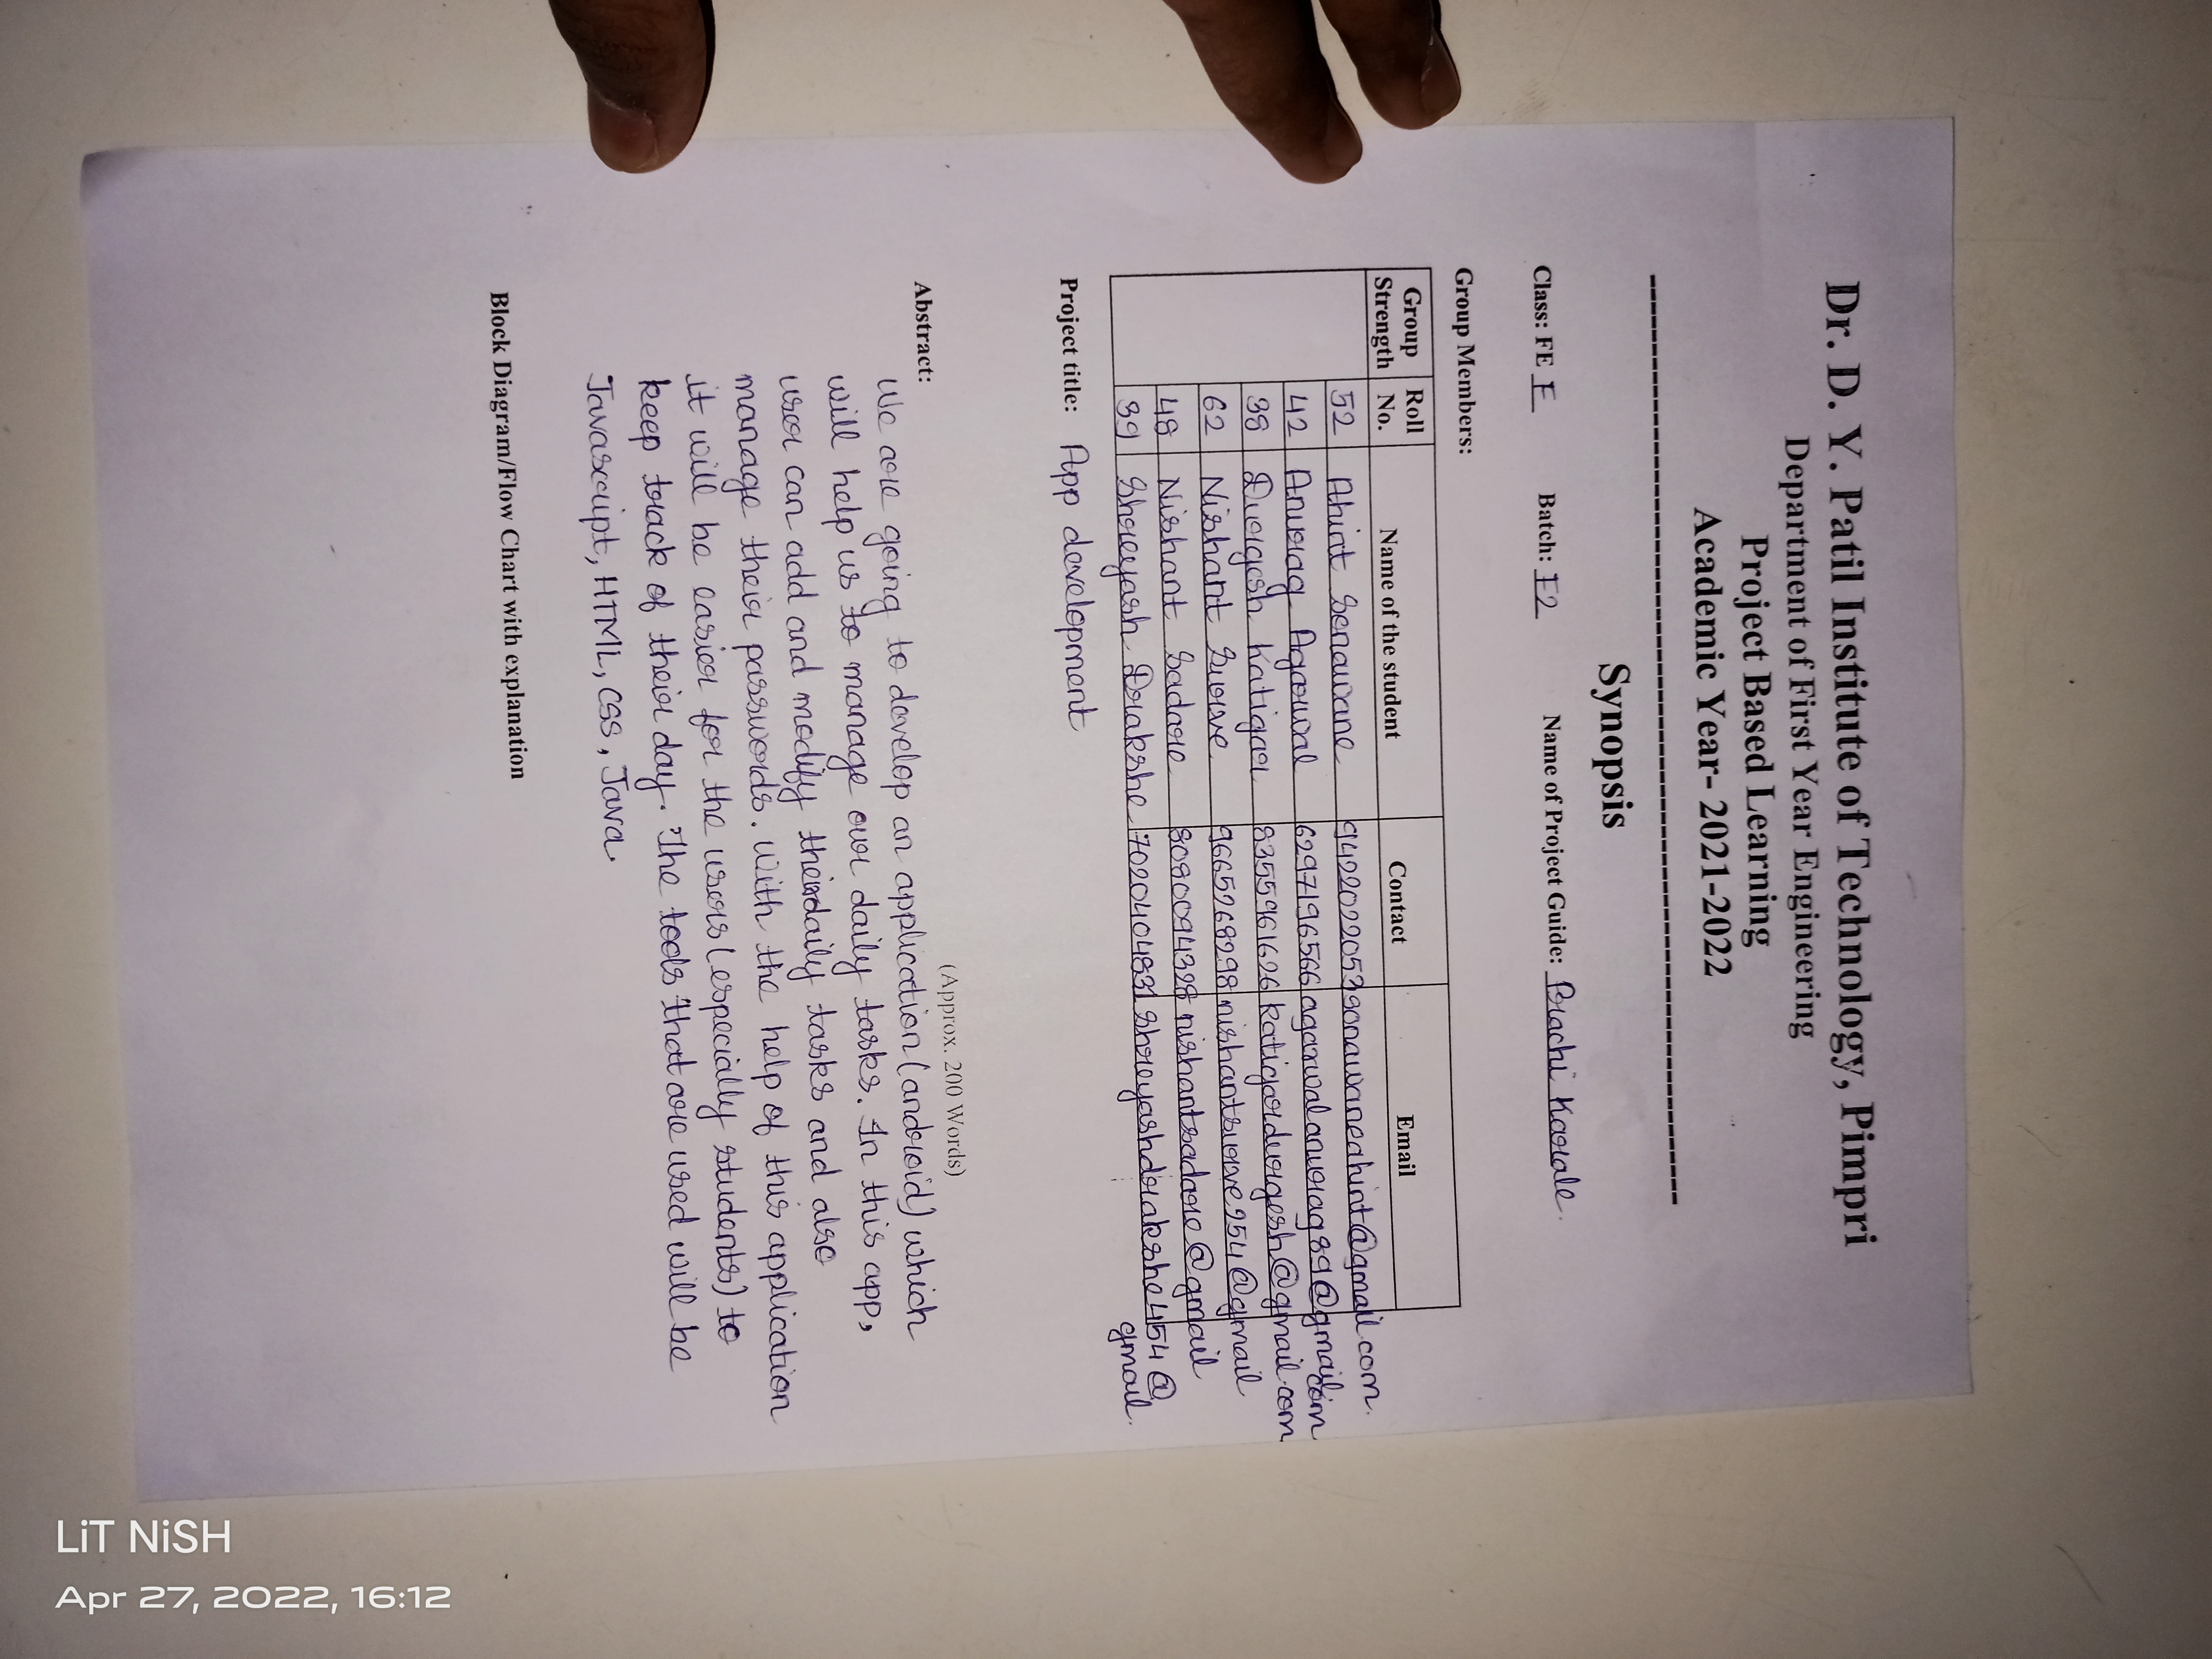 Dr. D. Y. Patil Institute of Technology, Pimpri
Department of First Year Engineering
Project Based Learning
Academic Year- 2021-2022
Synopsis
Class: FE I Batch: I2 Name of Project Guide: Prachi Karale.
Group Members:
Group Strength Roll No. Name of the student Contact Email
52 Ahirat Sonawane 9422022053 sonawaneahirat@gmail.com.
42 Anurag Agarwal 6297196566 agarwalanurag89@gmail.com
38 Durgesh Katigar 8355961626 katigardurgesh@gmail.com
62 Nishant Surve 9665268298 nishantsurve954@gmail
48 Nishant Sadare 8080094328 nishantsadare@gmail
39 Shreyash Drakshe 7020404831 shreyashdrakshe454@
gmail.
Project title: App development
Abstract: (Approx. 200 Words)
We are going to develop an application (android) which
will help us to manage our daily tasks. In this app,
user can add and modify their daily tasks and also
manage their passwords. With the help of this application
it will be easier for the users (especially students) to
keep track of their day. The tools that are used will be
Javascript, HTML, CSS, Java.
Block Diagram/Flow Chart with explanation
LiT NiSH
Apr 27, 2022, 16:12